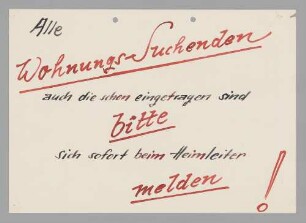 Alle
Wohnungs-Suchenden
auch die schon eingetragen sind
bitte
sich sofort beim Heimleiter
melden!